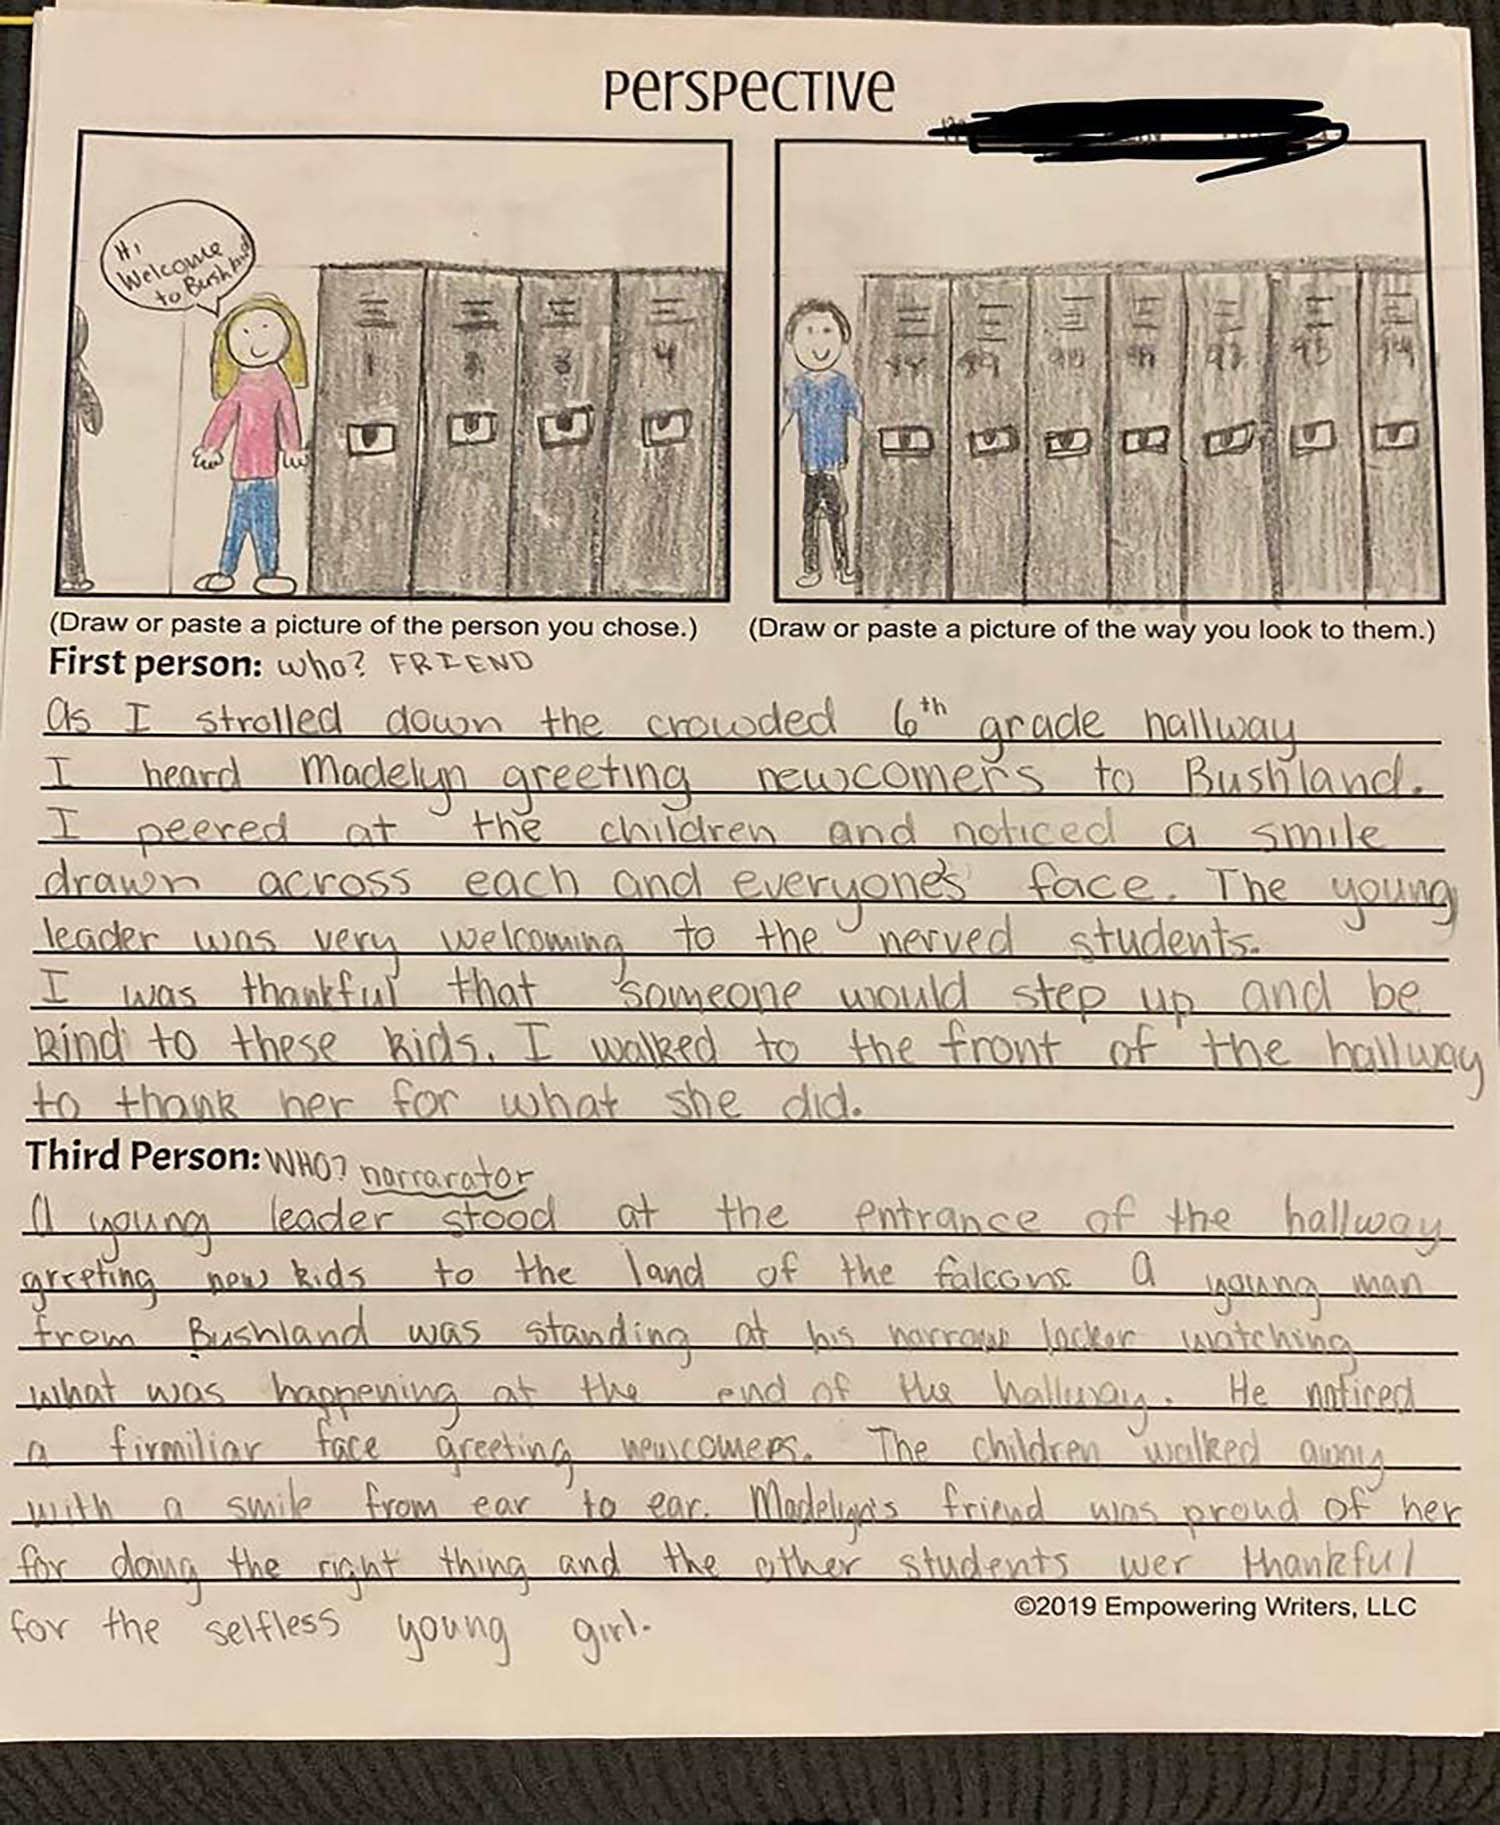 PERSPECTIVE
Hi
Welcome
to Bushland
1 2 3 4
(Draw or paste a picture of the person you chose.)
(Draw or paste a picture of the way you look to them.)
First person: Who? FRIEND
As I strolled down the crowded 6th grade hallway
I heard Madelyn greeting newcomers to Bushland.
I peered at the children and noticed a smile
drawn across each and everyone's face. The young
leader was very welcoming to the nerved students.
I was thankful that someone would step up and be
kind to these kids. I walked to the front of the hallway
to thank her for what she did.
Third Person: WHO? norrarator
A young leader stood at the entrance of the hallway
greeting new kids to the land of the falcons A young man
from Bushland was standing at his narrow locker watching
what was happening at the end of the hallway. He noticed
a firmiliar face greeting newcomers. The children walked away
with a smile from ear to ear. Madelyn's friend was proud of her
for doing the right thing and the other students wer thankful
©2019 Empowering Writers, LLC
for the selfless young girl.